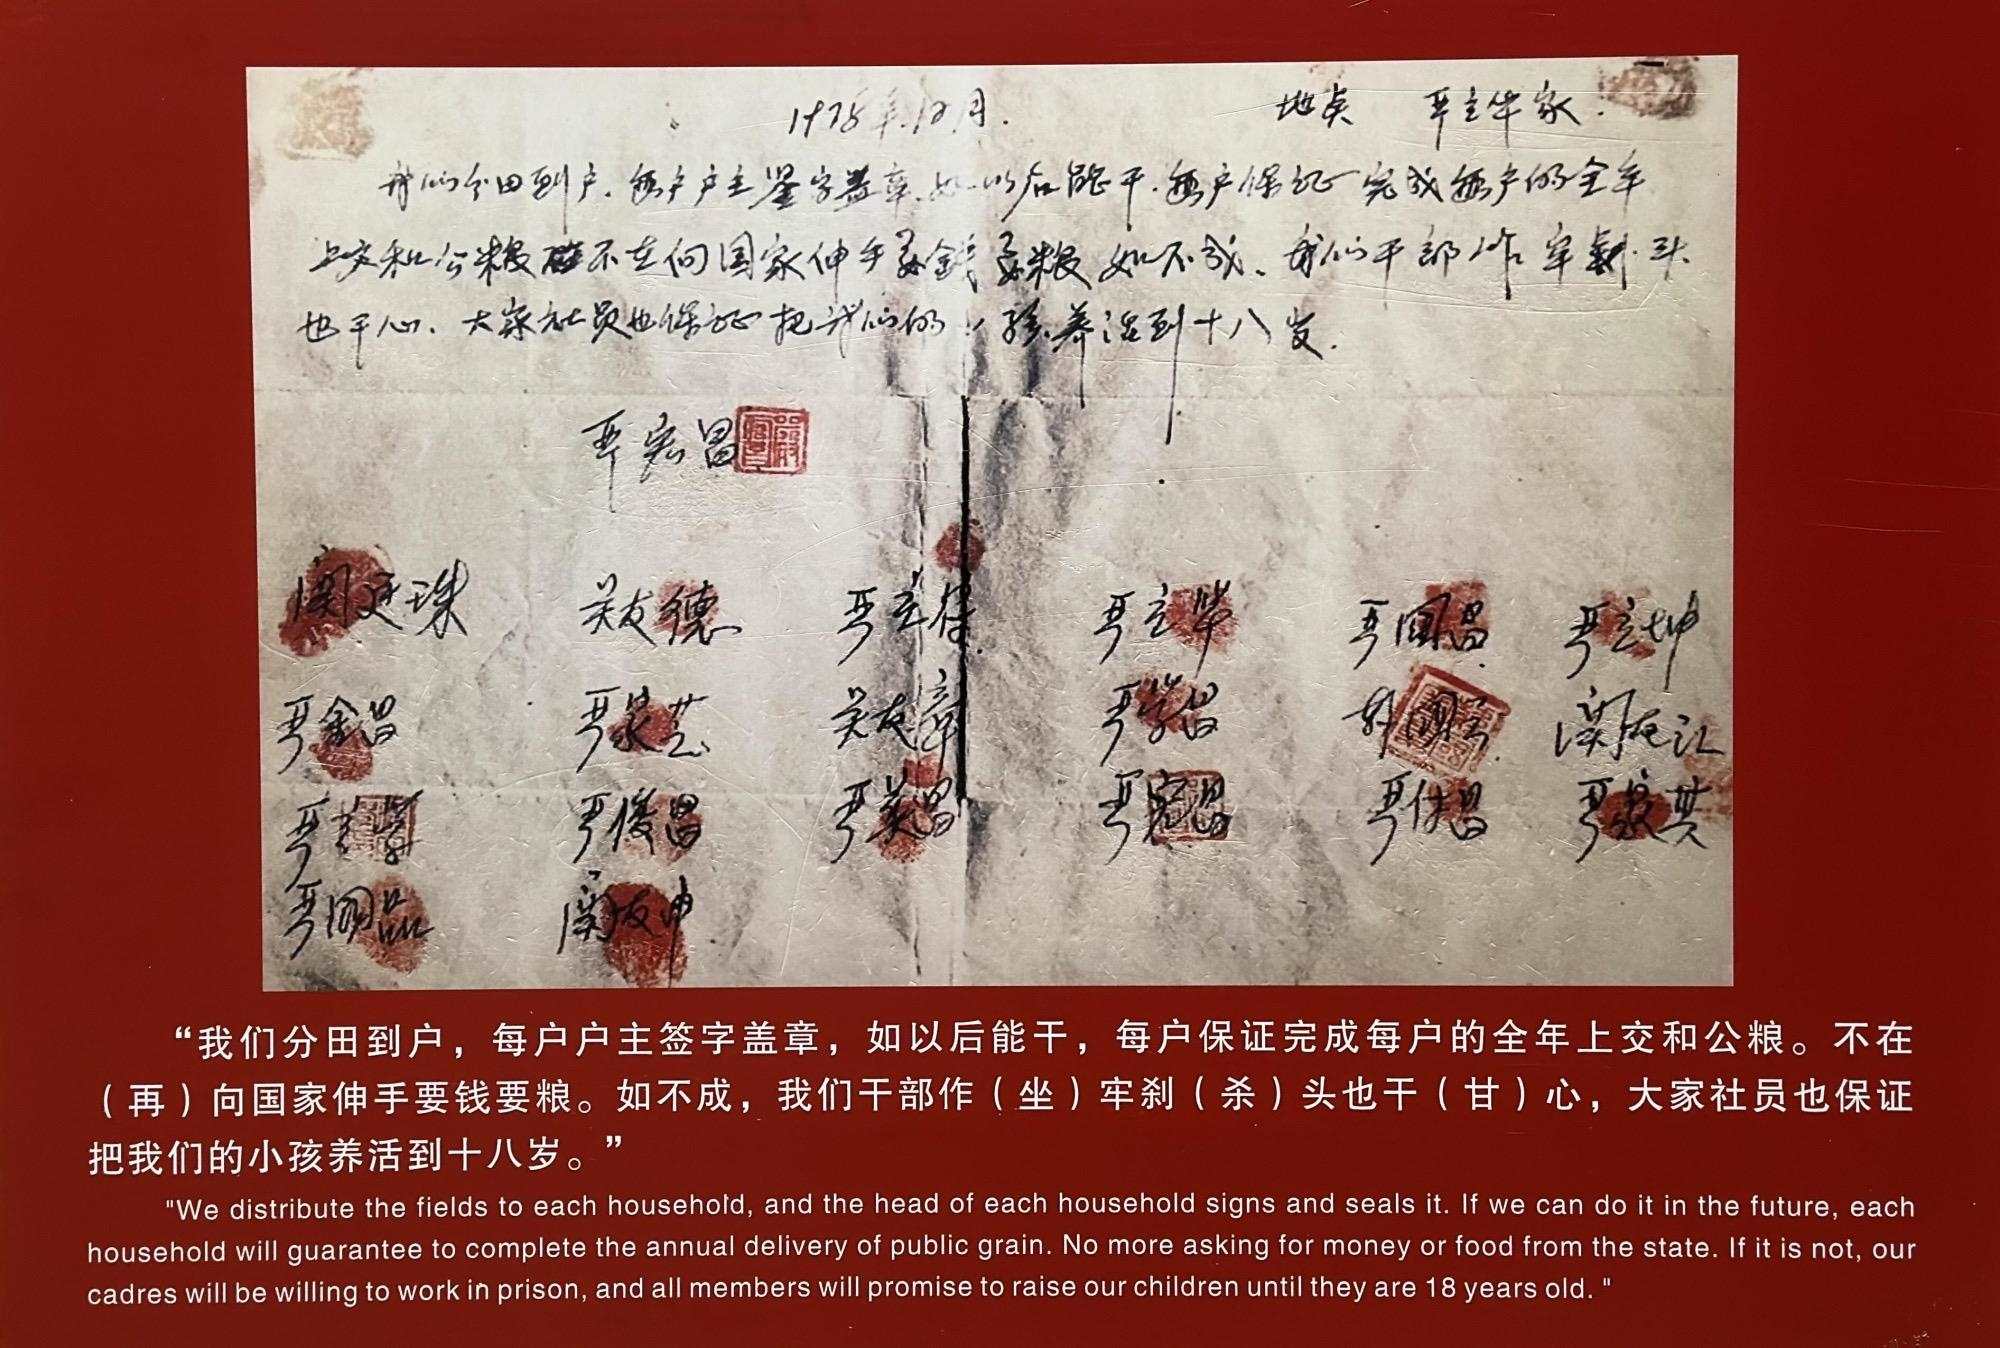 1978年12月. 地点 严立华家.
我们分田到户.每户户主签字盖章.如以后能干.每户保证完成每户的全年
上交和公粮 不在向国家伸手要钱要粮 如不成.我们干部作牢刹头
也干心.大家社员也保证把我们的小孩养活到十八岁.
严宏昌
关廷珠 关友德 严立符 严立华 严国昌 严立坤
严金昌 严家芝 关友章 严学昌 韩国云 关友江
严立学 严俊昌 严美昌 严宏昌 严付昌 严家其
严国品 关友申
“我们分田到户，每户户主签字盖章，如以后能干，每户保证完成每户的全年上交和公粮。不在
（再）向国家伸手要钱要粮。如不成，我们干部作（坐）牢刹（杀）头也干（甘）心，大家社员也保证
把我们的小孩养活到十八岁。”
"We distribute the fields to each household, and the head of each household signs and seals it. If we can do it in the future, each
household will guarantee to complete the annual delivery of public grain. No more asking for money or food from the state. If it is not, our
cadres will be willing to work in prison, and all members will promise to raise our children until they are 18 years old. "